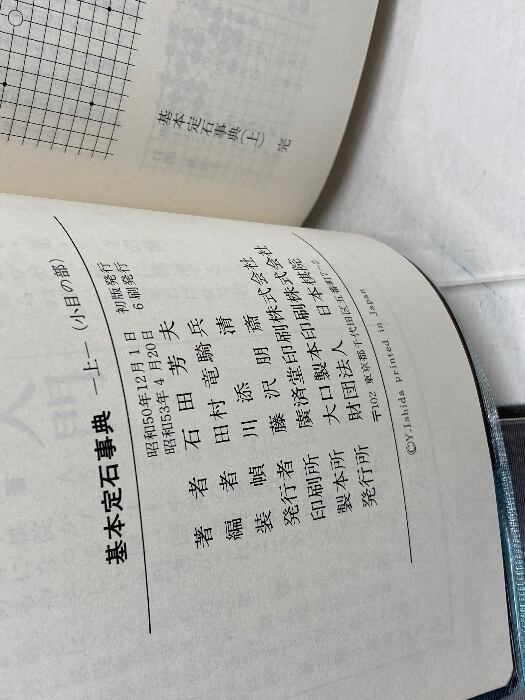 基本定石事典(上) 完
基本定石事典 —上—(小目の部)
昭和50年12月1日 初版発行
昭和53年4月20日 6刷発行
著者 石田芳夫
編者 田村竜騎兵
装幀 川添清
発行者 藤沢朋斎
印刷所 廣済堂印刷株式会社
製本所 大口製本印刷株式会社
発行所 財団法人 日本棋院
〒102 東京都千代田区五番町7-2
©Y.Ishida Printed in Japan